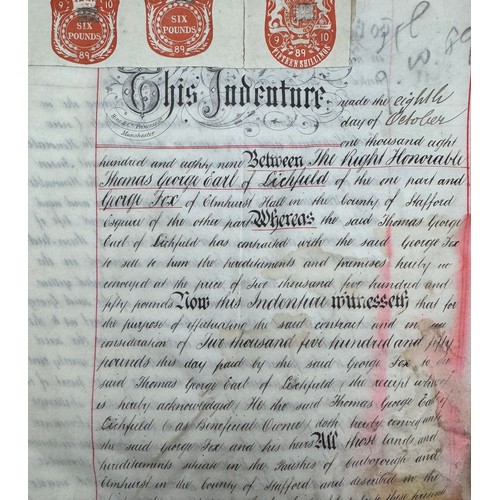 9 10 9 10 9 10
SIX POUNDS SIX POUNDS FIFTEEN SHILLINGS
89 89 89
This Indenture made the eighth
day of October
Manchester
one thousand eight
hundred and eighty nine Between The Right Honorable
Thomas George Earl of Lichfield of the one part and
George Fox of Elmhurst Hall in the County of Stafford
Esquire of the other part Whereas the said Thomas George
Earl of Lichfield has contracted with the said George Fox
to sell to him the hereditaments and premises hereby
conveyed at the price of Two thousand five hundred and
fifty pounds Now this Indenture witnesseth that for
the purpose of effectuating the said contract and in
consideration of Two thousand five hundred and fifty
pounds this day paid by the said George Fox to the
said Thomas George Earl of Lichfield (the receipt
is hereby acknowledged) He the said Thomas George Earl
Lichfield as Beneficial Owner doth hereby convey unto
the said George Fox and his heirs All those lands and
hereditaments situate in the Parishes of Curborough and
Elmhurst in the County of Stafford and described in the
these presents